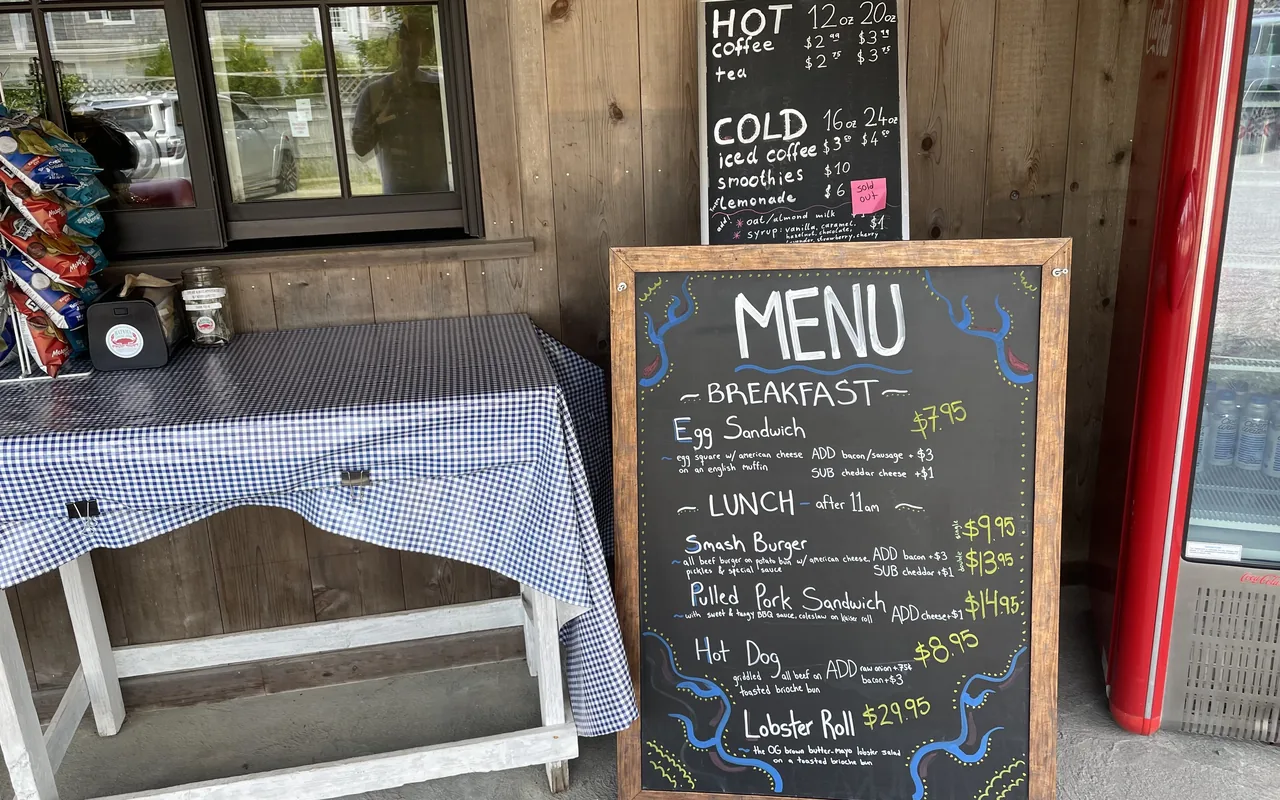 HOT 12oz 20oz
coffee $2.99 $3.99
tea $2.75 $3.75
COLD 16oz 24oz
iced coffee $3.50 $4.50
smoothies $10
lemonade $6
sold
out
add:
* oat/almond milk
* syrup: vanilla, caramel, $1
hazelnut, chocolate,
lavender, strawberry, cherry
MENU
~ BREAKFAST ~
Egg Sandwich $7.95
~ egg square w/ american cheese ADD bacon/sausage + $3
on an english muffin SUB cheddar cheese + $1
~ LUNCH - after 11am ~
Smash Burger single $9.95
~ all beef burger on potato bun w/ american cheese, ADD bacon +$3 double $13.95
pickles & special sauce SUB cheddar +$1
Pulled Pork Sandwich $14.95
~ with sweet & tangy BBQ sauce, coleslaw on kaiser roll ADD cheese +$1
Hot Dog $8.95
griddled all beef on ADD raw onion +.75¢
toasted brioche bun bacon +$3
Lobster Roll $29.95
~ the OG brown butter-mayo lobster salad
on a toasted brioche bun
Coca-Cola
Coca-Cola